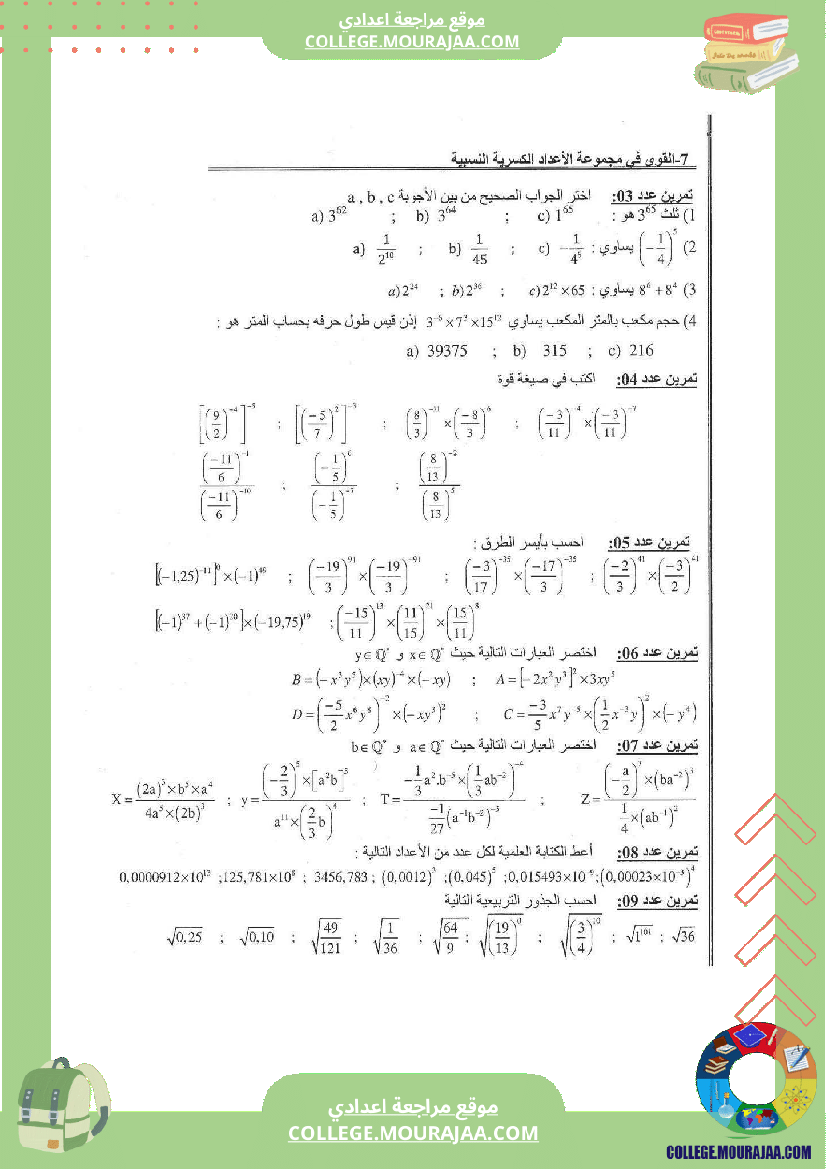 موقع مراجعة اعدادي
COLLEGE.MOURAJAA.COM
7-القوى في مجموعة الأعداد الكسرية النسبية
تمرين عدد 03: اختر الجواب الصحيح من بين الأجوبة a , b , c
1) ثلث 3^65 هو : a) 3^62 ; b) 3^64 ; c) 1^65
2) (-1/4)^5 يساوي : a) 1/2^10 ; b) 1/45 ; c) -1/4^5
3) 8^6 + 8^4 يساوي : a) 2^24 ; b) 2^36 ; c) 2^12 × 65
4) حجم مكعب بالمتر المكعب يساوي 3^-6 × 7^3 × 15^12 إذن قيس طول حرفه بحساب المتر هو :
a) 39375 ; b) 315 ; c) 216
تمرين عدد 04: اكتب في صيغة قوة
[(9/2)^-4]^-5 ; [(-5/7)^2]^-3 ; (8/3)^-11 × (-8/3)^6 ; (-3/11)^-4 × (-3/11)^-7
(-11/6)^-1 / (-11/6)^-10 ; (-1/5)^6 / (-1/5)^-7 ; (8/13)^-2 / (8/13)^5
تمرين عدد 05: احسب بأيسر الطرق :
[(-1,25)^-11]^0 × (-1)^49 ; (-19/3)^91 × (-19/3)^-91 ; (-3/17)^-35 × (-17/3)^-35 ; (-2/3)^41 × (-3/2)^41
[(-1)^37 + (-1)^20] × (-19,75)^19 ; (-15/11)^13 × (11/15)^21 × (15/11)^8
تمرين عدد 06: اختصر العبارات التالية حيث x∈ℚ* و y∈ℚ*
B = (-x^3 y^5) × (xy)^-4 × (-xy) ; A = [-2x^2 y^3]^2 × 3xy^5
D = (-5/2 x^6 y^8)^-2 × (-xy^3)^2 ; C = -3/5 x^7 y^-5 × (1/2 x^-3 y)^2 × (-y^4)
تمرين عدد 07: اختصر العبارات التالية حيث a∈ℚ* و b∈ℚ*
X = (2a)^3 × b^5 × a^4 / 4a^5 × (2b)^3 ; y = (-2/3)^5 × [a^2 b]^-3 / a^11 × (2/3 b)^4 ; T = -1/3 a^2.b^-5 × (1/3 ab^-2)^-4 / -1/27 (a^-1 b^-2)^-3 ; Z = (-a/2)^7 × (ba^-2)^3 / 1/4 × (ab^-1)^2
تمرين عدد 08: أعط الكتابة العلمية لكل عدد من الأعداد التالية :
0,0000912×10^13 ;125,781×10^8 ; 3456,783 ; (0,0012)^3 ;(0,045)^5 ;0,015493×10^-9 ;(0,00023×10^-3)^4
تمرين عدد 09: احسب الجذور التربيعية التالية
√0,25 ; √0,10 ; √49/121 ; √1/36 ; √64/9 ; √(19/13)^0 ; √(3/4)^10 ; √1^101 ; √36
موقع مراجعة اعدادي
COLLEGE.MOURAJAA.COM
COLLEGE.MOURAJAA.COM